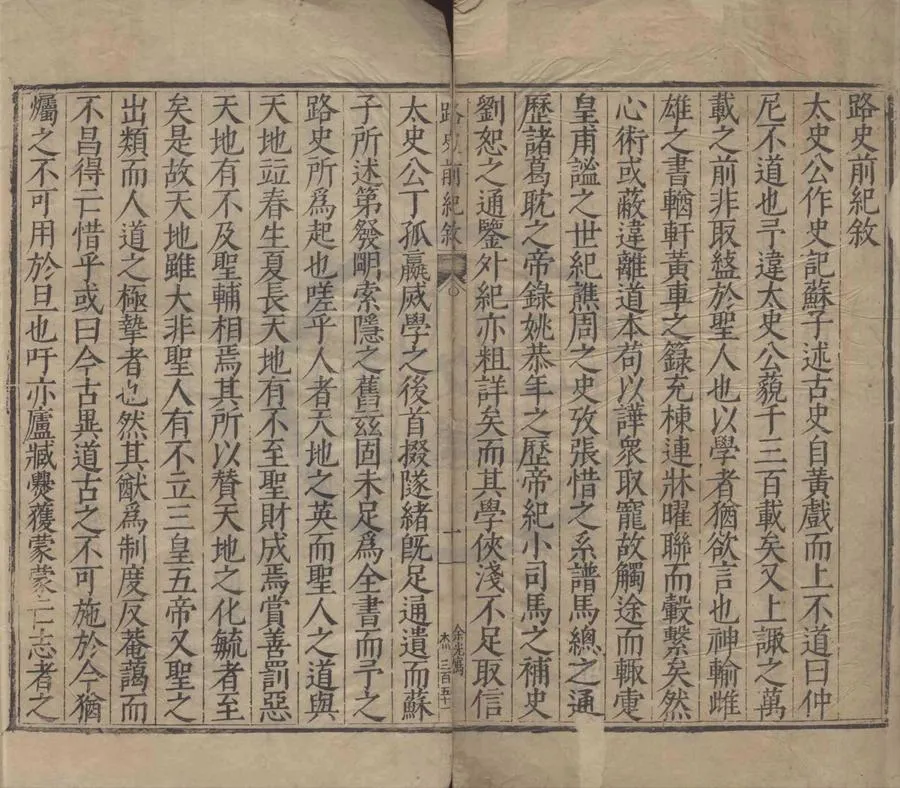 路史前紀敘
太史公作史記蘇子述古史自黃戲而上不道曰仲
尼不道也予違太史公藐千三百載矣又上諏之萬
載之前非取盭於聖人也以學者猶欲言也神輸雌
雄之書輶軒黃車之錄充棟連牀曜聯而轂繫矣然
心術或蔽違離道本苟以譁衆取寵故觸途而輙疐
皇甫謐之世紀譙周之史攷張愔之系譜馬緫之通
歷諸葛耽之帝錄姚恭年之歷帝紀小司馬之補史
劉恕之通鑒外紀亦粗詳矣而其學俠淺不足取信
路史前紀敘
一
余光寫
木 三百五十
太史公丁孤嬴烕學之後首掇隧緒旣足通遺而蘇
子所述第發明索隱之舊茲固未足爲全書而予之
路史所爲起也嗟乎人者天地之英而聖人之道與
天地竝春生夏長天地有不至聖財成焉賞善罰惡
天地有不及聖輔相焉其所以贊天地之化毓者至
矣是故天地雖大非聖人有不立三皇五帝又聖之
出類而人道之極摯者也然其猷爲制度反菴藹而
不昌得亡惜乎或曰今古異道古之不可施於今猶
爥之不可用於旦也吁亦廬臧㸑獲蒙蒙亡志者之